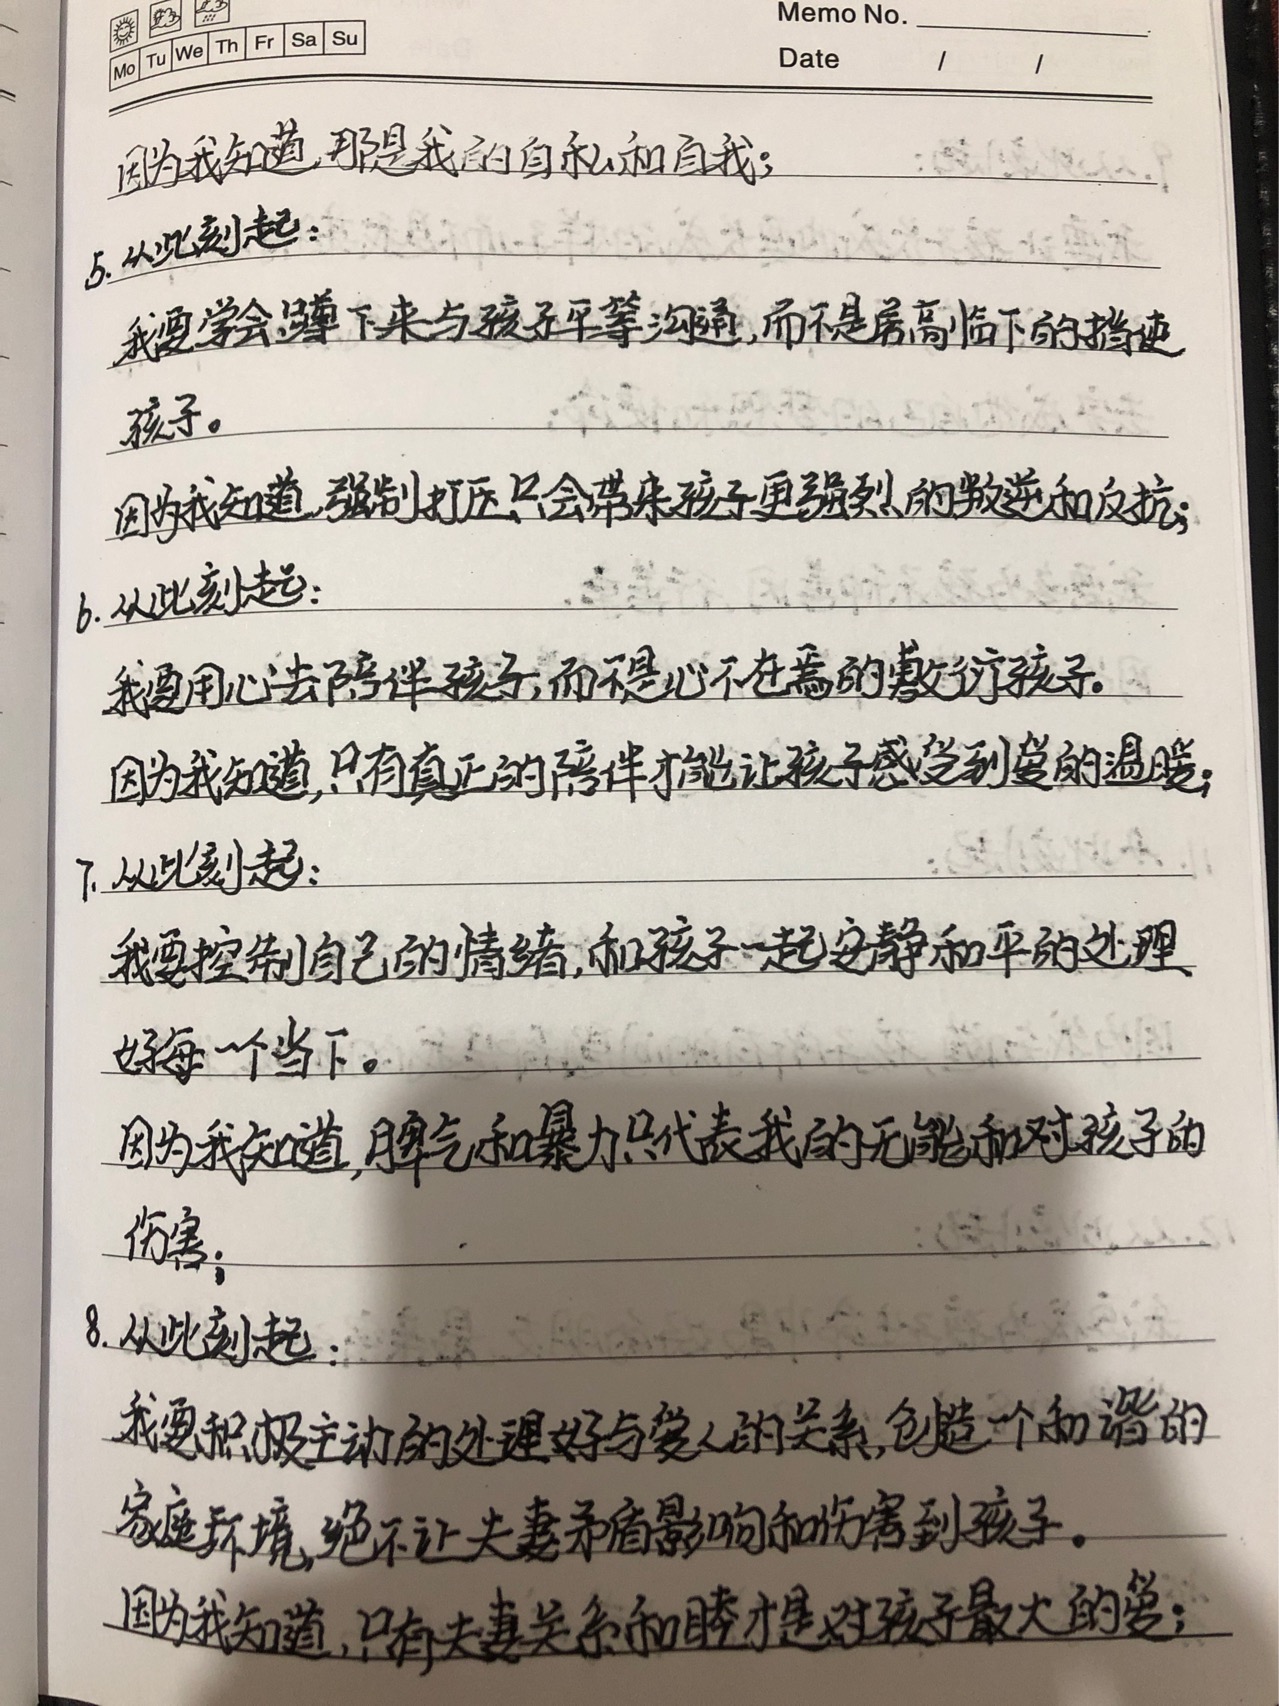 Memo No.
Mo Tu We Th Fr Sa Su
Date / /
因为我知道,那是我的自私和自我;
5.从此刻起:
我要学会蹲下来与孩子平等沟通,而不是居高临下的指使
孩子。
因为我知道,强制打压只会带来孩子更强烈的叛逆和反抗;
6.从此刻起:
我要用心去陪伴孩子,而不是心不在焉的敷衍孩子.
因为我知道,只有真正的陪伴才能让孩子感受到爱的温暖;
7.从此刻起:
我要控制自己的情绪,和孩子一起安静和平的处理
好每一个当下。
因为我知道,脾气和暴力只代表我的无能和对孩子的
伤害;
8.从此刻起:
我要积极主动的处理好与爱人的关系,创造一个和谐的
家庭环境,绝不让夫妻矛盾影响和伤害到孩子.
因为我知道,只有夫妻关系和睦才是对孩子最大的爱;